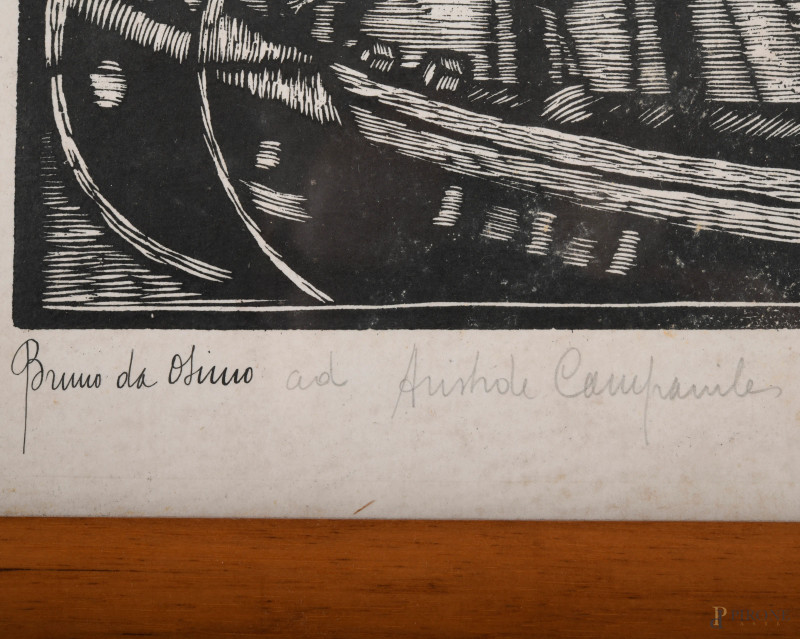 Bruno da Osimo ad Aristide Campanile